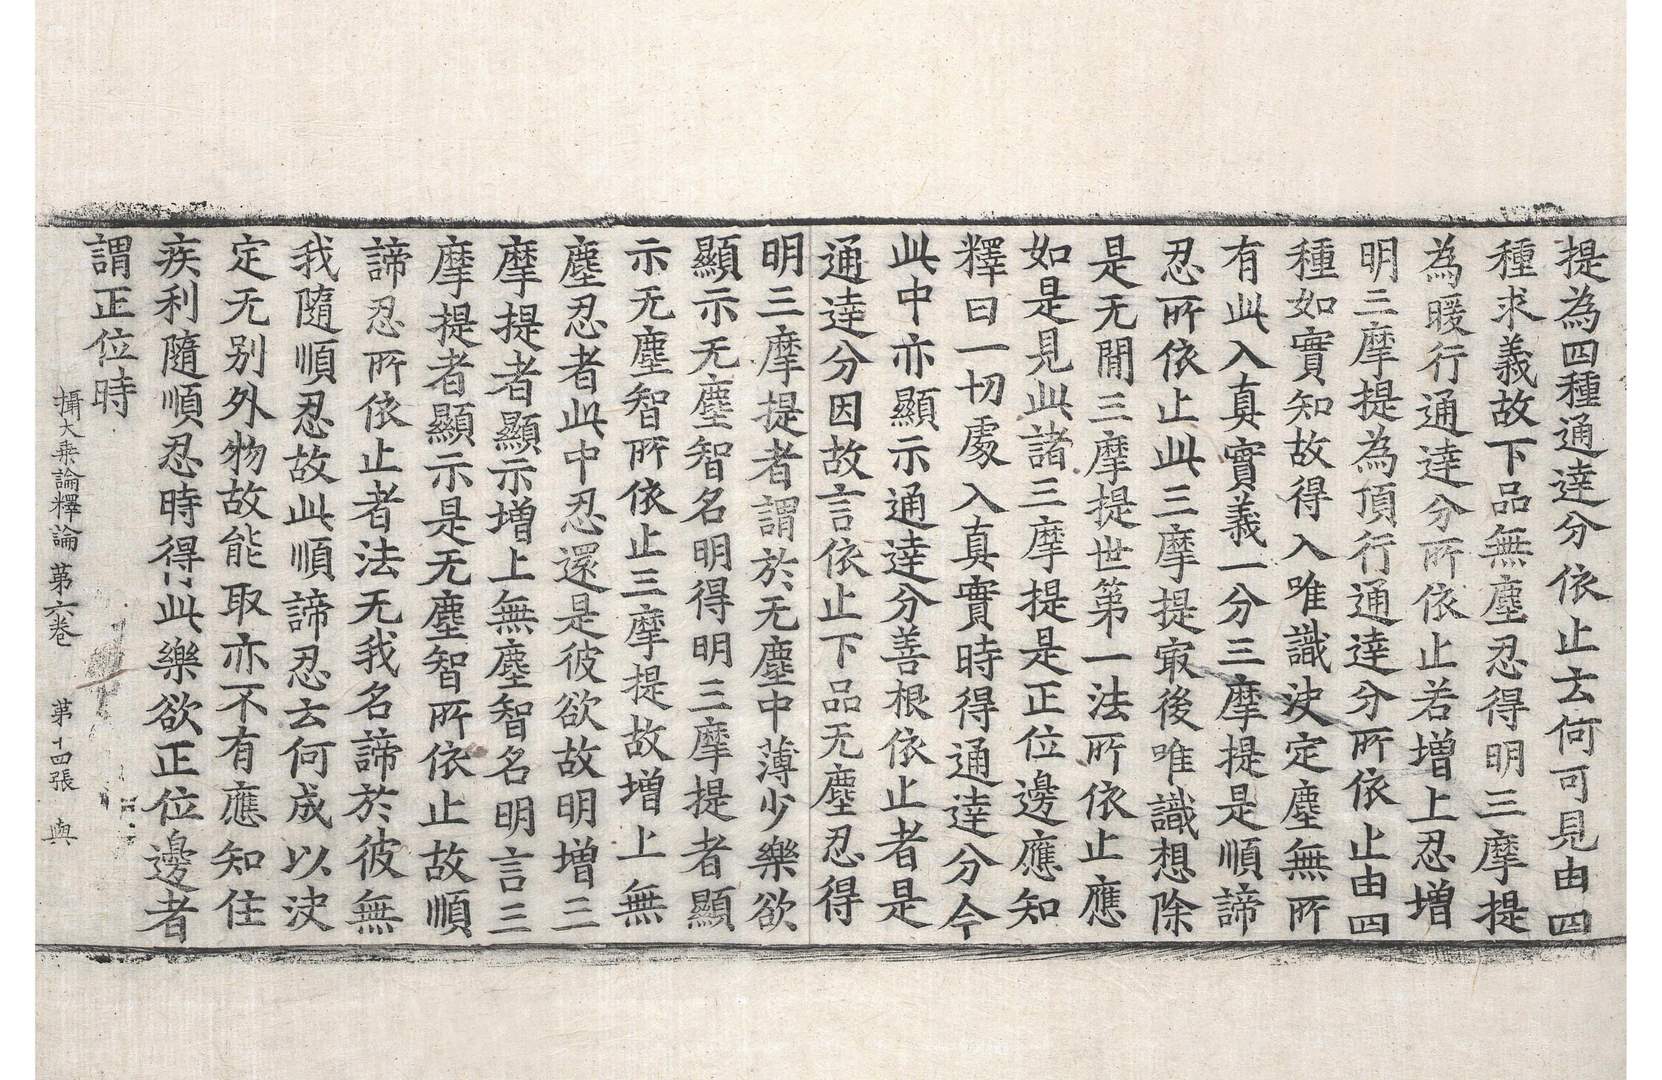 提為四種通達分依止去何可見由四
種求義故下品無塵忍得明三摩提
為暖行通達分所依止若增上忍增
明三摩提為頂行通達分所依止由四
種如實知故得入唯識決定塵無所
有此入真實義一分三摩提是順諦
忍所依止此三摩提㝡後唯識想除
是无閒三摩提世第一法所依止應
如是見此諸三摩提是正位邊應知
釋曰一切處入真實時得通達分今
此中亦顯示通達分善根依止者是
通達分因故言依止下品无塵忍得
明三摩提者謂於无塵中薄少樂欲
顯示无塵智名明得明三摩提者顯
示无塵智所依止三摩提故增上無
塵忍者此中忍還是彼欲故明增三
摩提者顯示增上無塵智名明言三
摩提者顯示是无塵智所依止故順
諦忍所依止者法无我名諦於彼無
我隨順忍故此順諦忍去何成以決
定无別外物故能取亦不有應知住
疾利隨順忍時得此樂欲正位邊者
謂正位時
攝大乘論釋論第六卷 第十四張 與